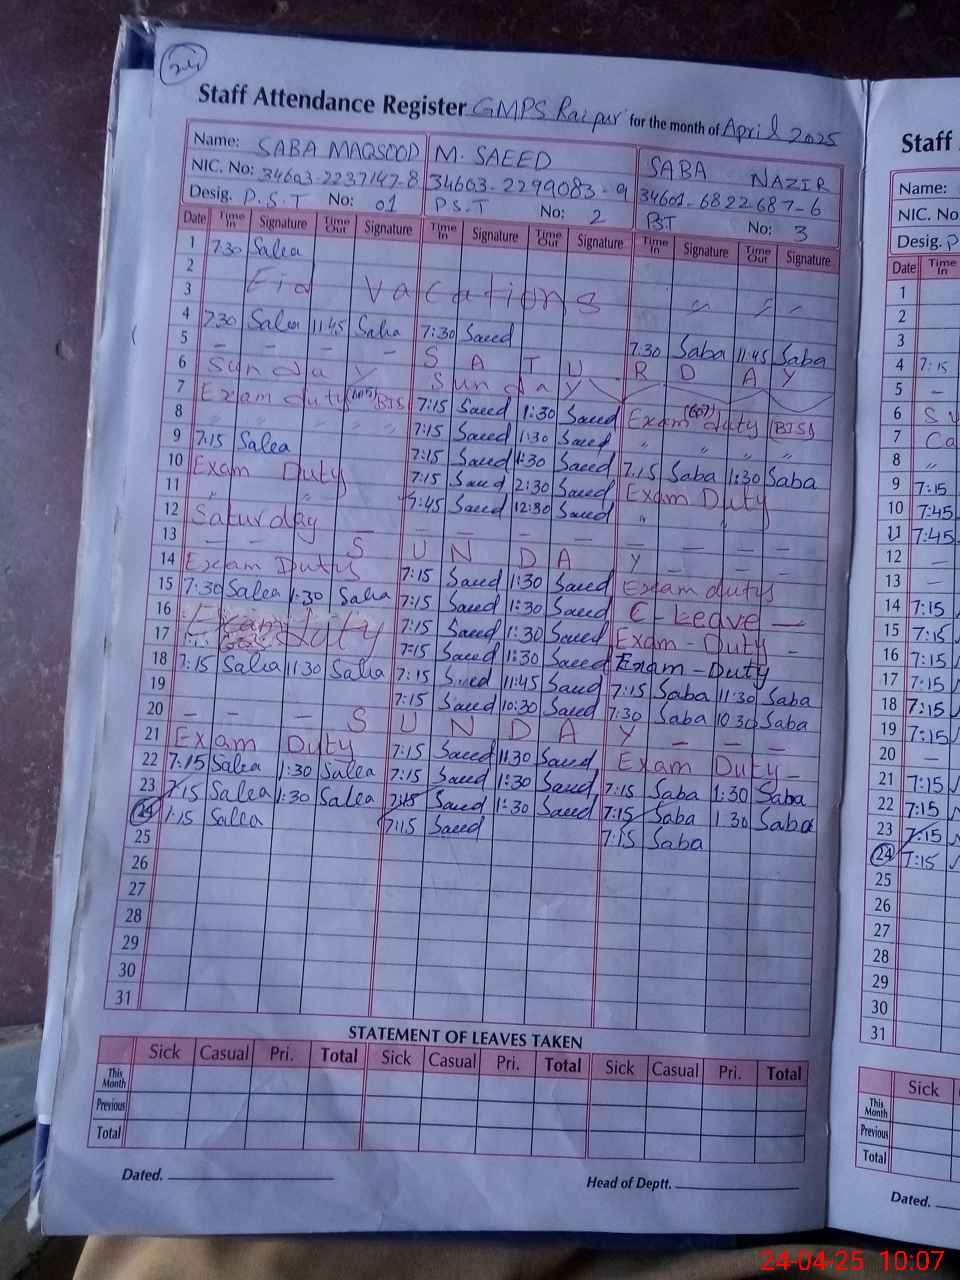 Staff Attendance Register GMPS Raipur for the month of April 2025
Name: SABA MAQSOOD M. SAEED SABA NAZIR
NIC. No: 34603-2237147-8 34603-2299083-9 34601-6822687-6
Desig. P.S.T No: 01 P.S.T No: 2 PST No: 3
Date Time In Signature Time Out Signature Time In Signature Time Out Signature Time In Signature Time Out Signature
1 7:30 Salea
2
3 Eid Vacations
4 7:30 Salea 11:45 Salea 7:30 Saeed 7:30 Saba 11:45 Saba
5 – – – – S A T U R D A Y
6 Sunday Sunday
7 Exam duty BISE 7:15 Saeed 1:30 Saeed Exam duty (BISE)
8 " " " " 7:15 Saeed 1:30 Saeed " " "
9 7:15 Salea 7:15 Saeed 1:30 Saeed 7:15 Saba 1:30 Saba
10 Exam Duty 7:15 Saeed 2:30 Saeed Exam Duty
11 " " 7:45 Saeed 12:30 Saeed " "
12 Saturday – – – – – – – –
13 – – S U N D A Y – – –
14 Exam Duty 7:15 Saeed 1:30 Saeed Exam duty
15 7:30 Salea 1:30 Salea 7:15 Saeed 1:30 Saeed C-Leave –
16 Exam duty 7:15 Saeed 1:30 Saeed Exam-Duty –
17 7:15 Saeed 1:30 Saeed Exam-Duty
18 7:15 Salea 11:30 Salea 7:15 Saeed 11:45 Saeed 7:15 Saba 11:30 Saba
19 7:15 Saeed 10:30 Saeed 7:30 Saba 10:30 Saba
20 – – – S U N D A Y – – –
21 Exam Duty 7:15 Saeed 11:30 Saeed Exam Duty –
22 7:15 Salea 1:30 Salea 7:15 Saeed 1:30 Saeed 7:15 Saba 1:30 Saba
23 7:15 Salea 1:30 Salea 7:15 Saeed 1:30 Saeed 7:15 Saba 1:30 Saba
24 7:15 Salea 7:15 Saeed 7:15 Saba
25
26
27
28
29
30
31
STATEMENT OF LEAVES TAKEN
Sick Casual Pri. Total Sick Casual Pri. Total Sick Casual Pri. Total
This Month
Previous
Total
Dated. Head of Deptt.
Staff
Name:
NIC. No
Desig. P
Date Time In
1
2
3
4 7:15
5 –
6
7
8 "
9 7:15
10 7:45
11 7:45
12 –
13 –
14 7:15
15 7:15
16 7:15
17 7:15
18 7:15
19 7:15
20 –
21 7:15
22 7:15
23 7:15
24 7:15
25
26
27
28
29
30
31
Sick
This Month
Previous
Total
Dated.
24-04-25 10:07